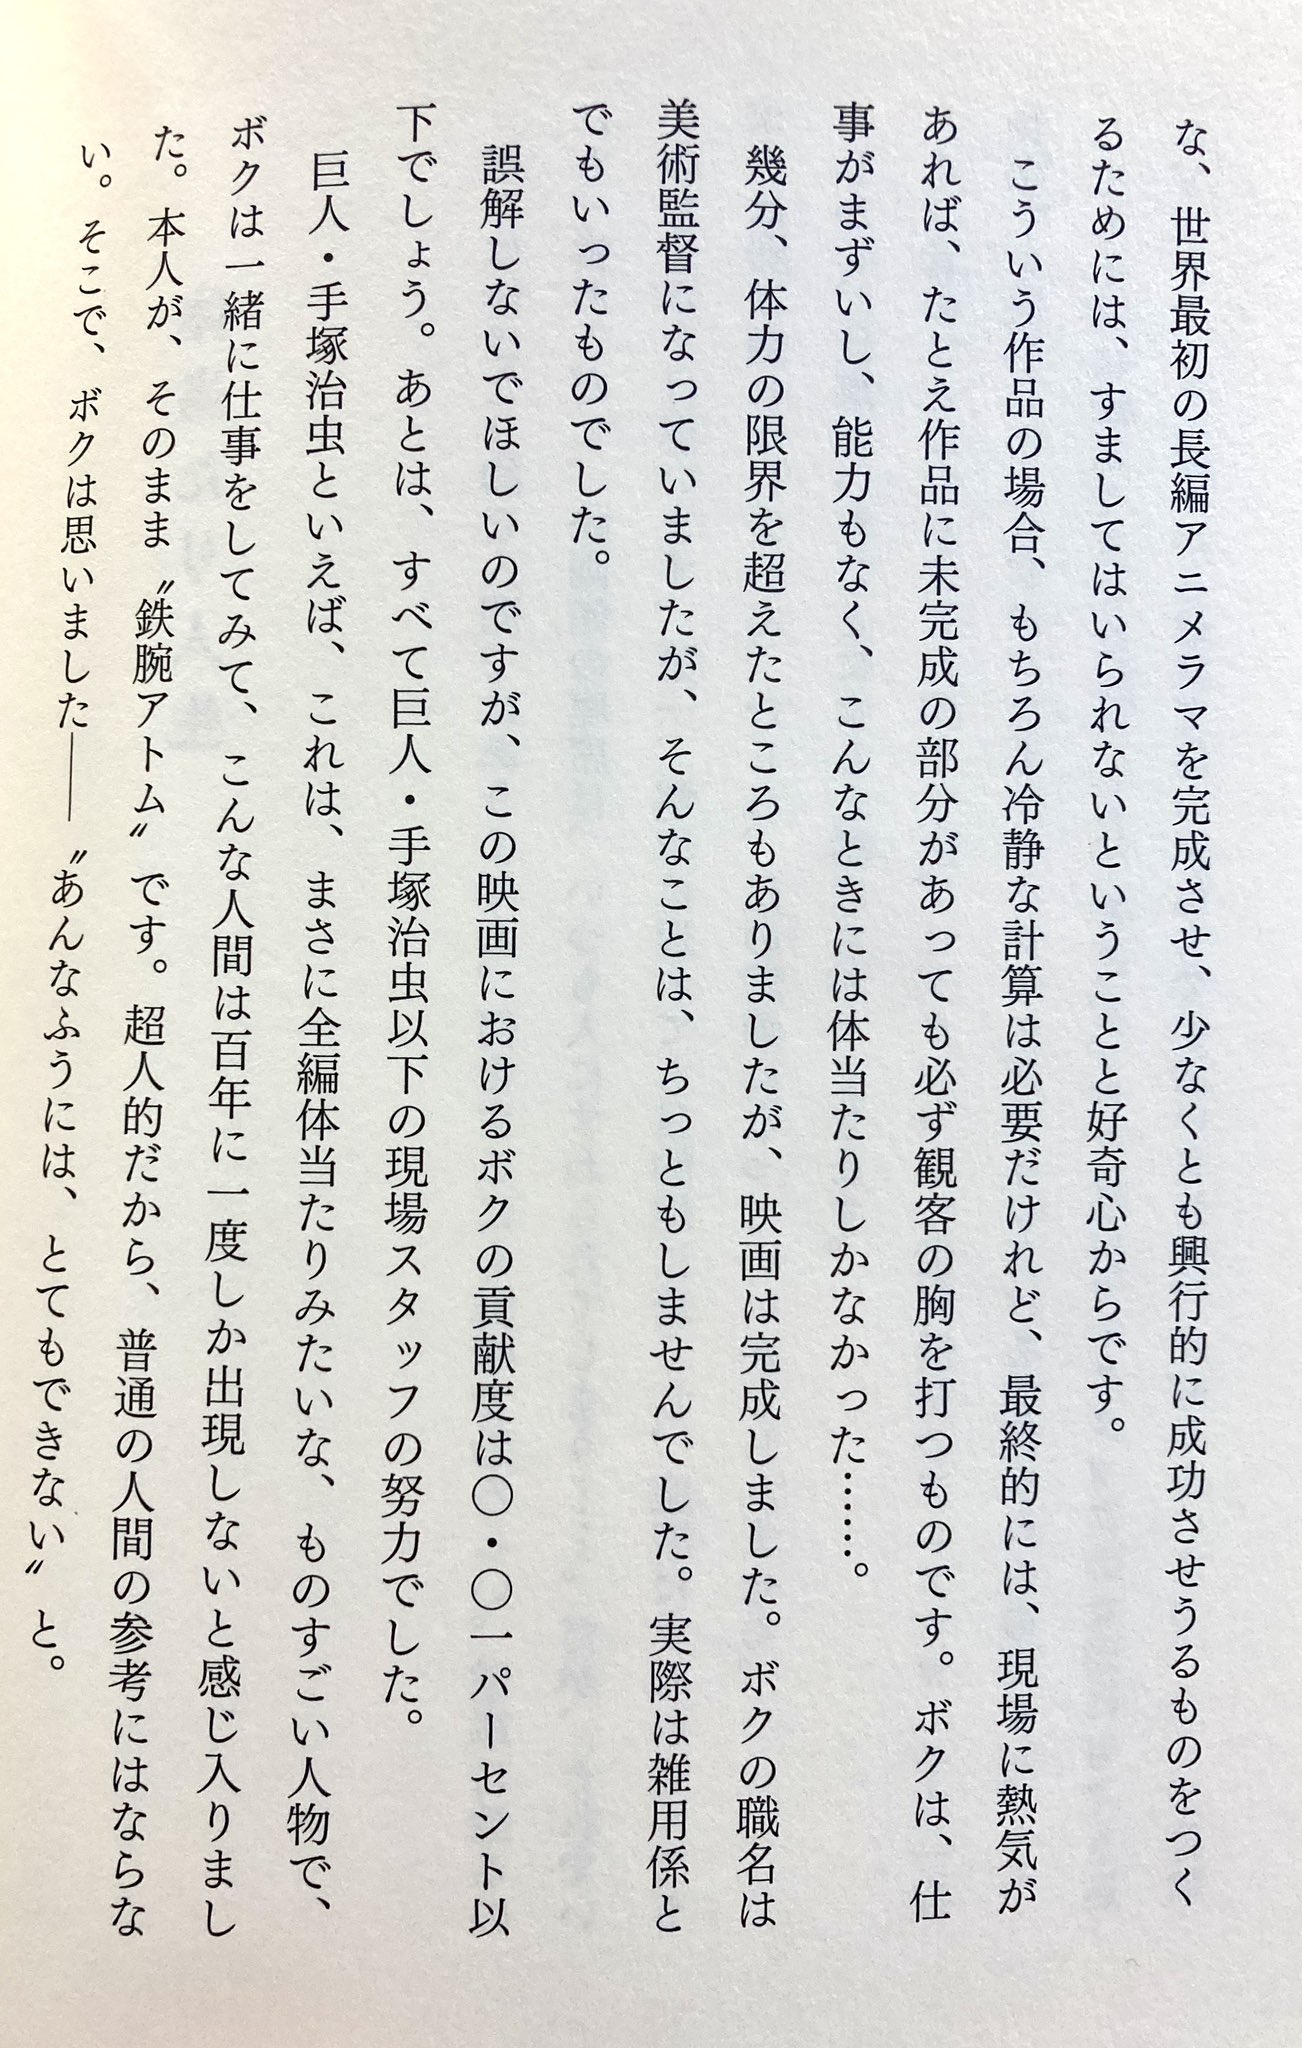 な、世界最初の長編アニメラマを完成させ、少なくとも興行的に成功させうるものをつく
るためには、すましてはいられないということと好奇心からです。
こういう作品の場合、もちろん冷静な計算は必要だけれど、最終的には、現場に熱気が
あれば、たとえ作品に未完成の部分があっても必ず観客の胸を打つものです。ボクは、仕
事がまずいし、能力もなく、こんなときには体当たりしかなかった……。
幾分、体力の限界を超えたところもありましたが、映画は完成しました。ボクの職名は
美術監督になっていましたが、そんなことは、ちっともしませんでした。実際は雑用係と
でもいったものでした。
誤解しないでほしいのですが、この映画におけるボクの貢献度は〇・〇一パーセント以
下でしょう。あとは、すべて巨人・手塚治虫以下の現場スタッフの努力でした。
巨人・手塚治虫といえば、これは、まさに全編体当たりみたいな、ものすごい人物で、
ボクは一緒に仕事をしてみて、こんな人間は百年に一度しか出現しないと感じ入りまし
た。本人が、そのまま〝鉄腕アトム〟です。超人的だから、普通の人間の参考にはならな
い。そこで、ボクは思いました――〝あんなふうには、とてもできない〟と。